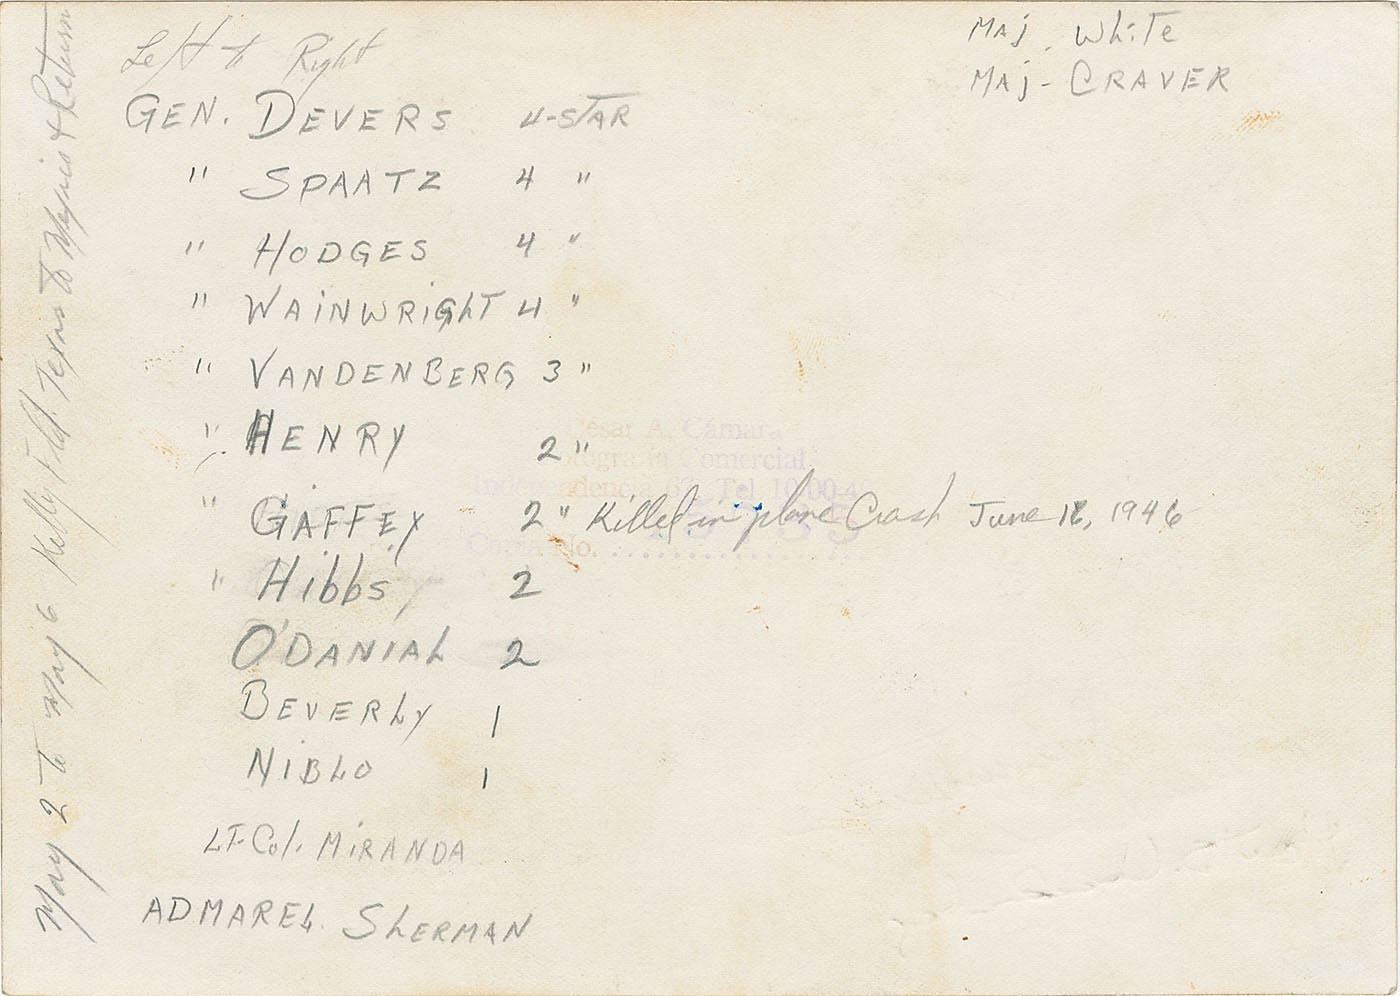 Left to Right
Maj. White
Maj- CRAVER
GEN. DEVERS 4-STAR
" SPAATZ 4 "
" HODGES 4 "
" WAINWRIGHT 4 "
" VANDENBERG 3 "
" HENRY 2 "
" GAFFEY 2 " Killed in plane Crash June 1946
" Hibbs 2
O'DANIAL 2
BEVERLY 1
NIBLO 1
LT-Col. MIRANDA
ADMAREL. SHERMAN
May 2 to May 6 Kelly Field. Texas to Mexico & Return
Cesar A. Cámara
Fotografia Comercial
Independencia Tel.
Copia No.